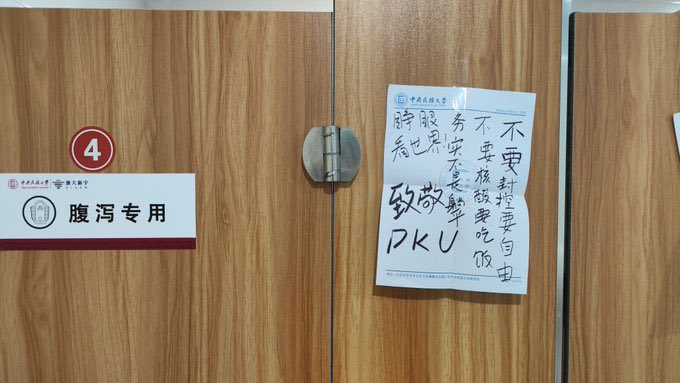 4
中央民族大学 浙大新宇
腹泻专用
中央民族大学
不要封控要自由
不要核酸要吃饭
务实不是躺平
睁眼
看世界!
致敬
PKU